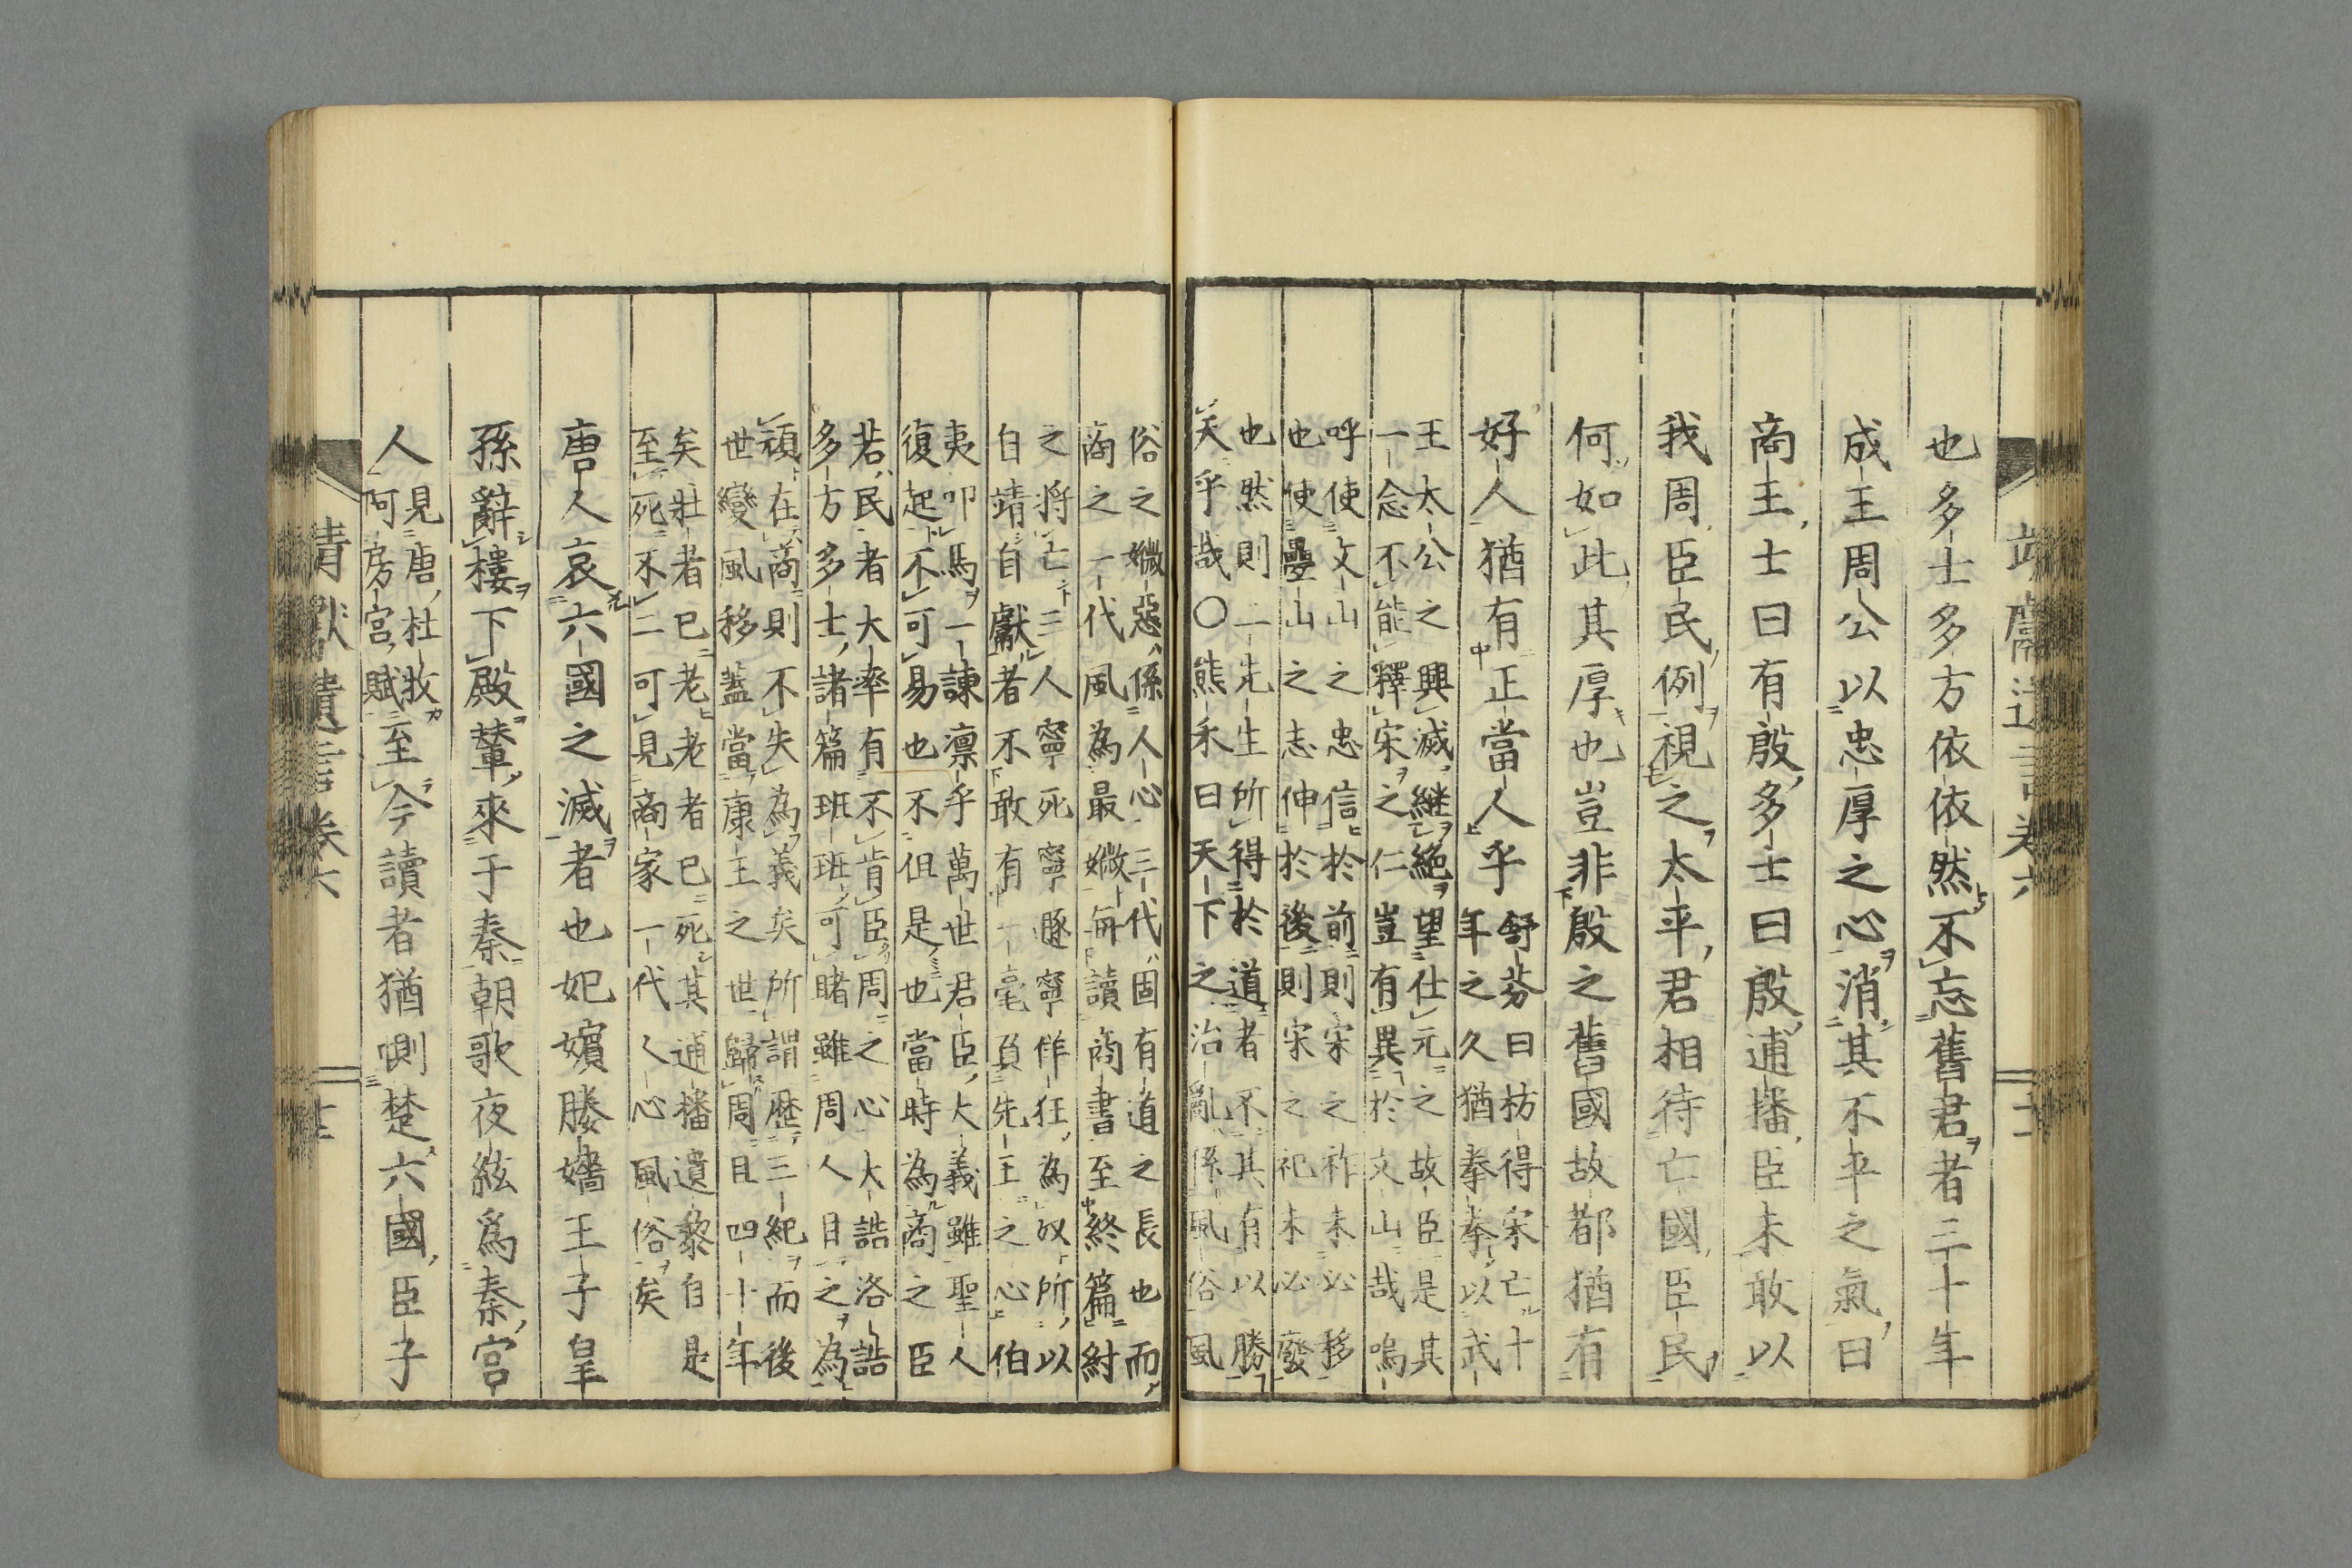 也多士多方依依然不忘舊君者三十年
成王周公以忠厚之心消其不平之氣曰
商王士曰有殷多士曰殷逋播臣未敢以
我周臣民例視之太平君相待亡國臣民
何如此其厚也豈非殷之舊國故都猶有
好人猶有正當人乎
舒芬曰枋得宋亡十
年之久猶拳拳以武
王太公之興滅繼絕望仕元之故臣是其
一念不能釋宋之仁豈有異於文山哉嗚
呼使文山之忠信於前則宋之祚未必移
也使疊山之志伸於後則宋之祀未必廢
也然則二先生所得於道者不其有以勝
天乎哉〇熊禾曰天下之治亂係風俗風
俗之媺惡係人心三代固有道之長也而
商之一代風為最媺每讀商書至終篇紂
之將亡三人寧死寧遯寧佯狂為奴所以
自靖自獻者不敢有一毫負先王之心伯
夷叩馬一諫凛乎萬世君臣大義雖聖人
復起不可易也不但是也當時為商之臣
若民者大率有不肯臣周之心大誥洛誥
多方多士諸篇班班可睹雖周人目之為
頑在商則不失為義矣所謂歷三紀而後
世變風移蓋當康王之世歸周且四十年
矣壯者已老老者已死其逋播遺黎自是
至死不二可見商家一代人心風俗矣
唐人哀六國之滅者也妃嬪媵嬙王子皇
孫辭樓下殿輦來于秦朝歌夜絃爲秦宮
人
見唐杜牧
阿房宮賦
至今讀者猶惻楚六國臣子